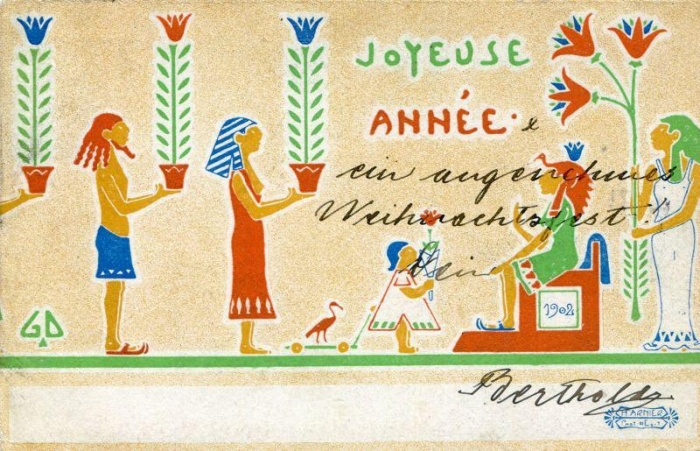 JOYEUSE
ANNÉE. &
ein angenehmes
Weihnachtsfest!
Dein
1902
GD
Berthold